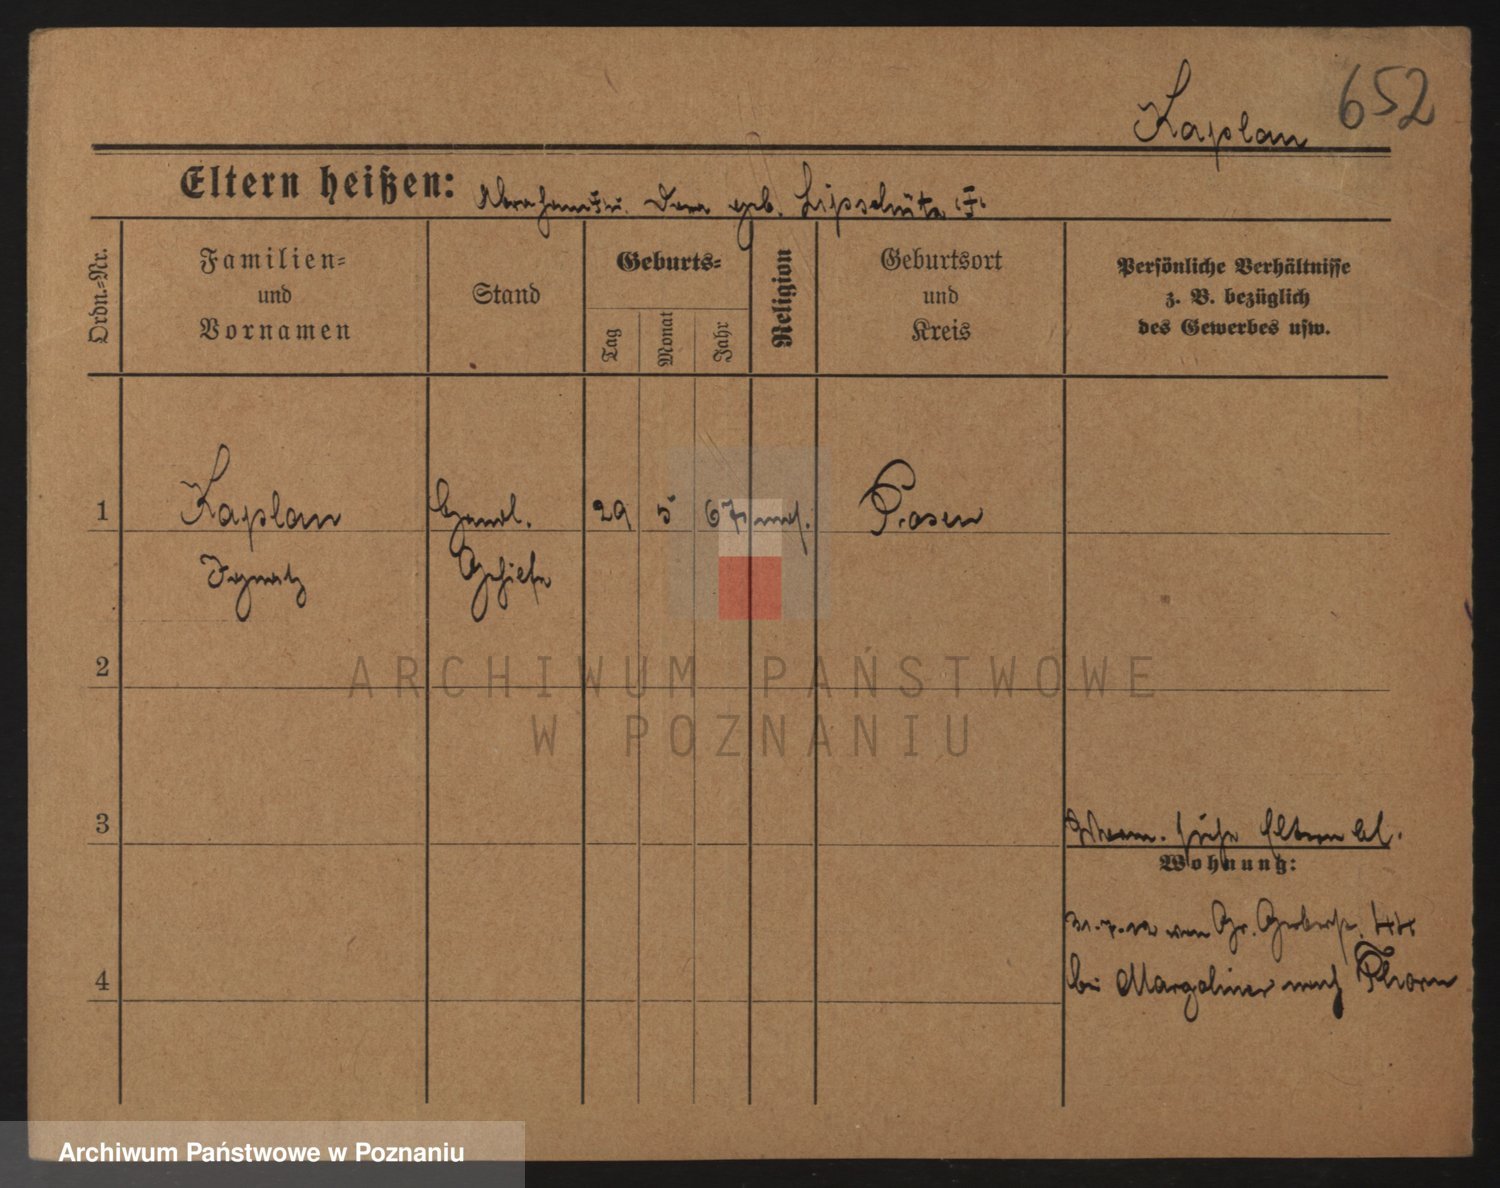 652
Kaplan
Eltern heißen: Abraham u. Dora geb. Lipschütz
Ordn.-Nr.
Familien-
und
Vornamen
Stand
Geburts-
Tag
Monat
Jahr
Religion
Geburtsort
und
Kreis
Persönliche Verhältnisse
z. B. bezüglich
des Gewerbes usw.
1
Kaplan
Handl.
29
5
67
mos.
Posen
Ignatz
Gehilfe
2
ARCHIWUM PAŃSTWOWE
W POZNANIU
3
siehe Eltern bl.
Wohnung:
von Gr. Gerberstr. 44
4
bei Margoliner nach Thorn
Archiwum Państwowe w Poznaniu